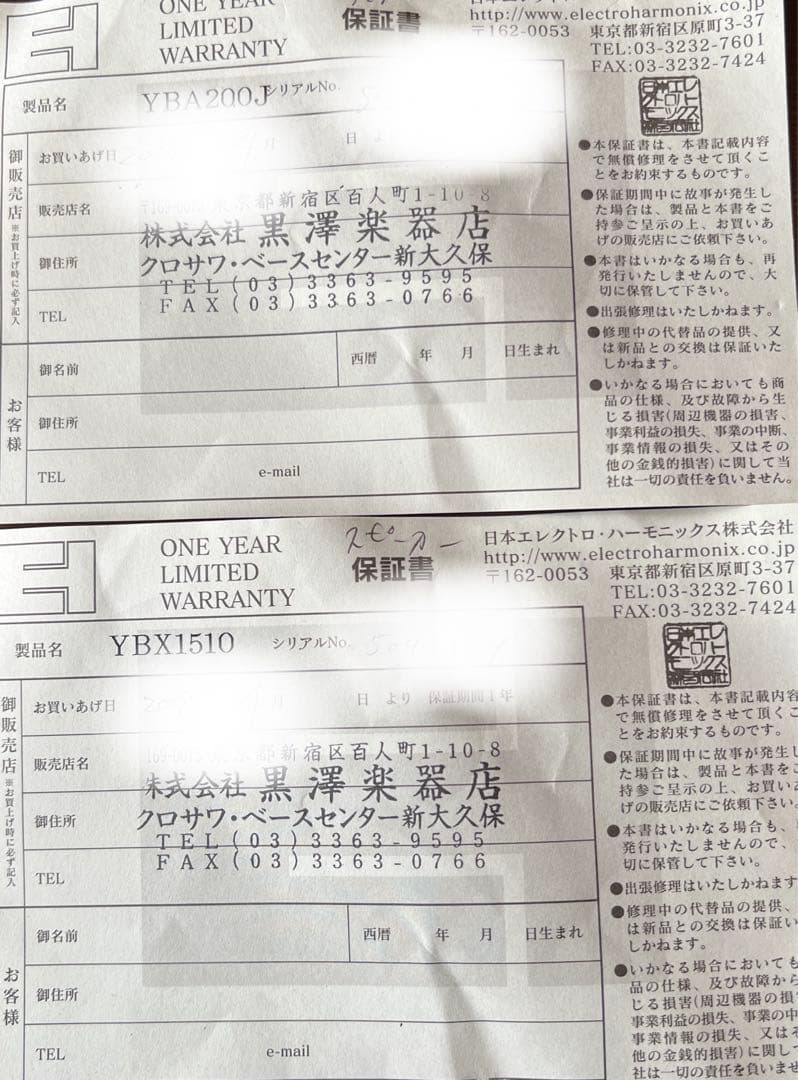 ONE YEAR
LIMITED
WARRANTY
保証書
日本エレクトロ
http://www.electroharmonix.co.jp
〒162-0053 東京都新宿区原町3-37
TEL:03-3232-7601
FAX:03-3232-7424
製品名 YBA200J シリアルNo.
日本エレクトロハーモニックス
御販売店 ※お買上げ時に必ず記入
お買いあげ日 月 日 よ
販売店名
東京都新宿区百人町1-10-8
株式会社 黒澤楽器店
御住所
クロサワ・ベースセンター新大久保
TEL(03)3363-9595
FAX(03)3363-0766
TEL
お客様
御名前 西暦 年 月 日生まれ
御住所
TEL e-mail
●本保証書は、本書記載内容
で無償修理をさせて頂くこ
とをお約束するものです。
●保証期間中に故事が発生し
た場合は、製品と本書をご
持参ご呈示の上、お買いあ
げの販売店にご依頼下さい。
●本書はいかなる場合も、再
発行いたしませんので、大
切に保管して下さい。
●出張修理はいたしかねます。
●修理中の代替品の提供、又
は新品との交換は保証いた
しかねます。
●いかなる場合においても商
品の仕様、及び故障から生
じる損害(周辺機器の損害、
事業利益の損失、事業の中断、
事業情報の損失、又はその
他の金銭的損害)に関して当
社は一切の責任を負いません。
ONE YEAR
LIMITED
WARRANTY
スピーカー
保証書
日本エレクトロ・ハーモニックス株式会社
http://www.electroharmonix.co.jp
〒162-0053 東京都新宿区原町3-37
TEL:03-3232-7601
FAX:03-3232-7424
製品名 YBX1510 シリアルNo.
御販売店 ※お買上げ時に必ず記入
お買いあげ日 月 日 より 保証期間1年
販売店名
東京都新宿区百人町1-10-8
株式会社 黒澤楽器店
御住所
クロサワ・ベースセンター新大久保
TEL(03)3363-9595
FAX(03)3363-0766
TEL
お客様
御名前 西暦 年 月 日生まれ
御住所
TEL e-mail
●本保証書は、本書記載内容
で無償修理をさせて頂くこ
とをお約束するものです。
●保証期間中に故事が発生し
た場合は、製品と本書をご
持参ご呈示の上、お買いあ
げの販売店にご依頼下さい。
●本書はいかなる場合も、
発行いたしませんので、
切に保管して下さい。
●出張修理はいたしかねます
●修理中の代替品の提供、
は新品との交換は保証い
しかねます。
●いかなる場合においても
品の仕様、及び故障から
じる損害(周辺機器の損
事業利益の損失、事業の中
事業情報の損失、又はそ
他の金銭的損害)に関して
社は一切の責任を負いませ